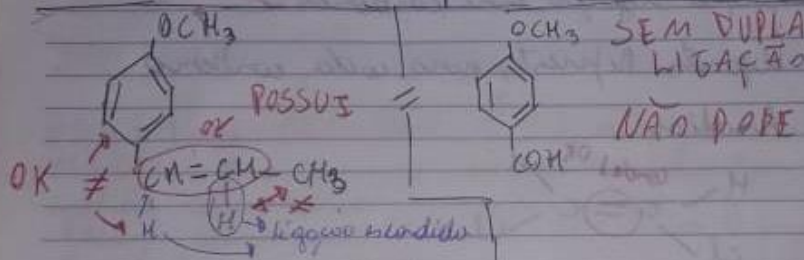 OCH3
POSSUI
OK
CH=CH-CH3
OK ≠
≠
H
H → ligação escondida
OCH3
COH
SEM DUPLA
LIGAÇÃO
NÃO PODE